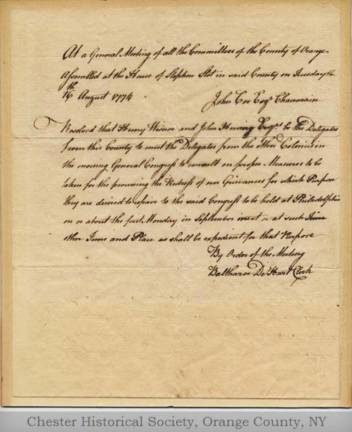 At a General Meeting of all the Committees of the County of Orange
Assembled at the House of Stephen Slot in said County on Tuesday the
16th August 1774
John Coe Esqr. Chairman
Resolved that Henry Wisner and John Herring Esqrs. be the Delegates
from this County to meet the Delegates from the Other Colonies in
the ensuing General Congress to consult on proper Measures to be
taken for the procuring the Redress of our Grievances for which Purpose
they are desired to repair to the said Congress to be held at Philadelphia
on or about the first Monday in September or at such
other Time and Place as shall be expedient for that Purpose
By Order of the Meeting
Balthazer De Hart Clerk
Chester Historical Society, Orange County, NY